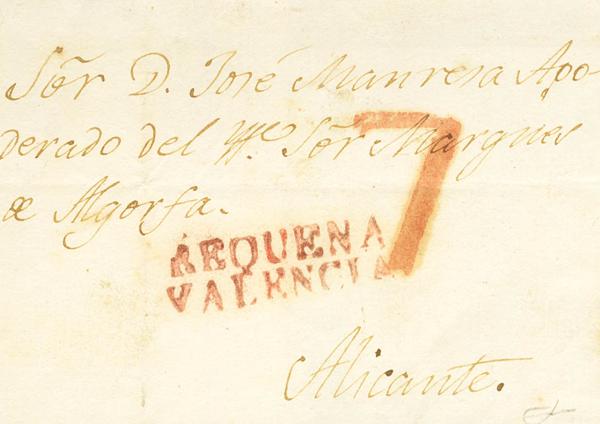 Sõr D. José Manresa Apo-
derado del Ylle. Sõr Marques
de Algorfa.
7
REQUENA
VALENCIA
Alicante.